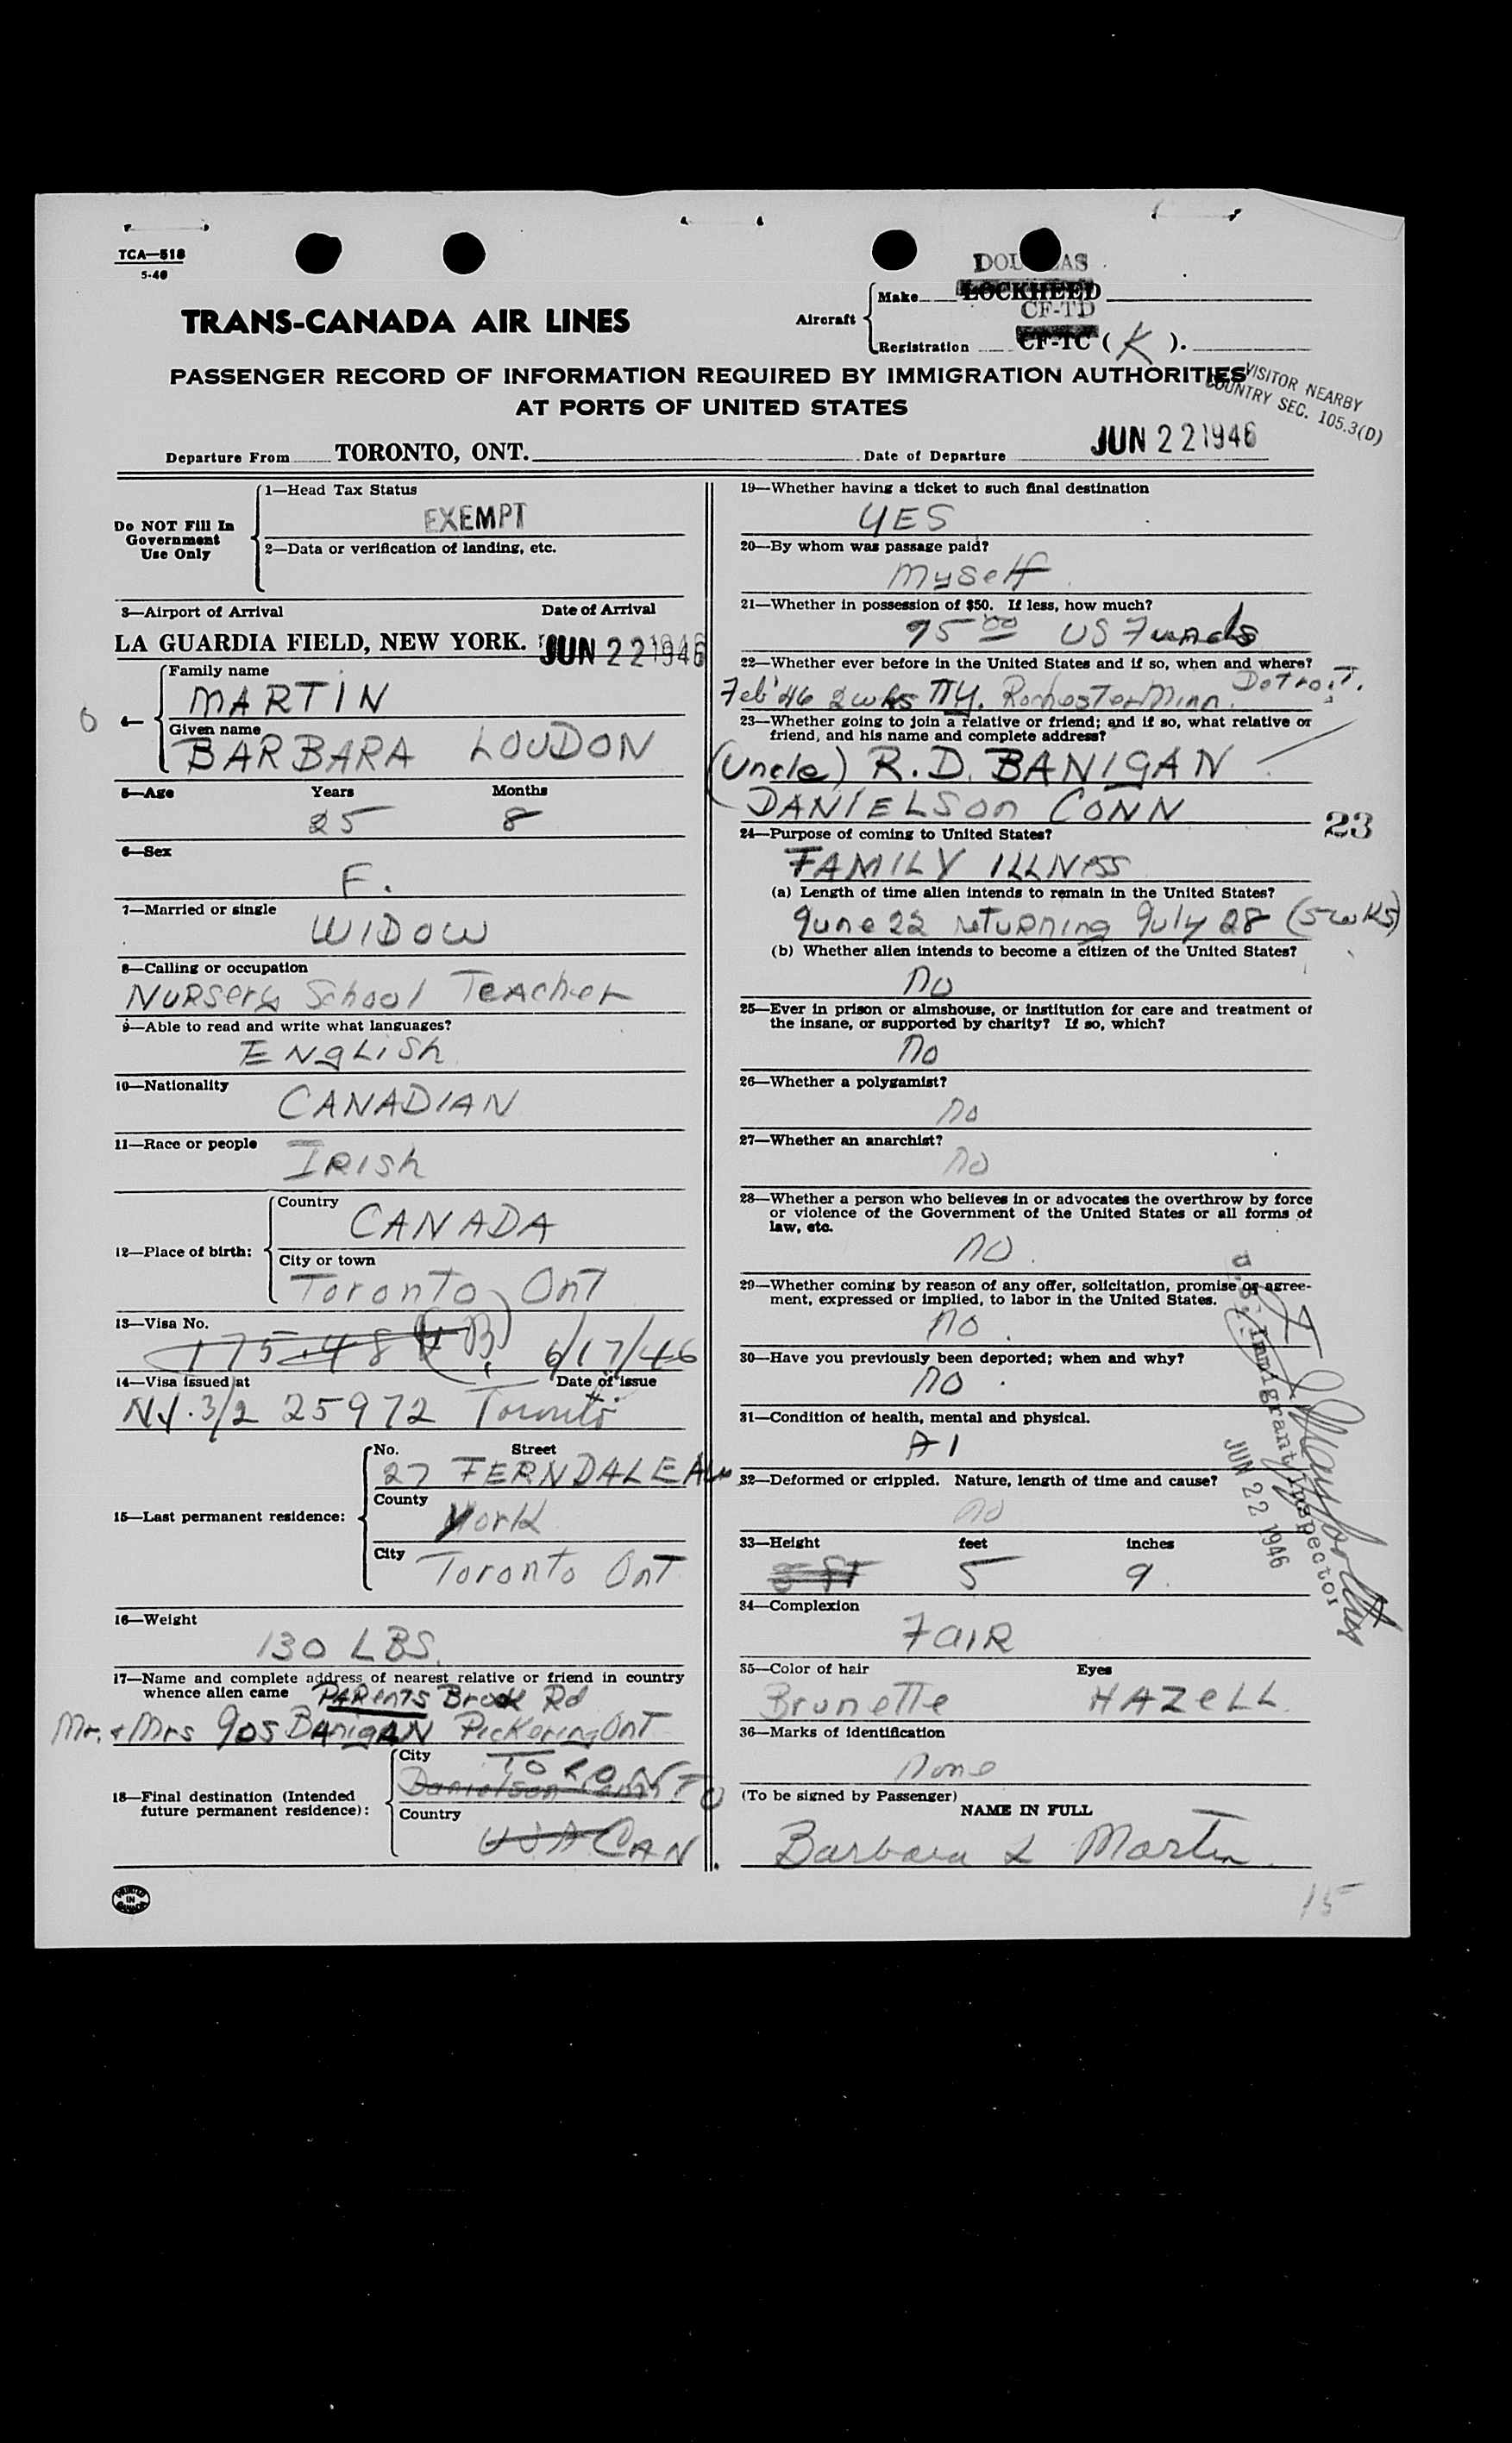 TCA—518
5-40
DOUGLAS
Aircraft
Make LOCKHEED
CF-TD
Registration CF-TC ( K ).
TRANS-CANADA AIR LINES
PASSENGER RECORD OF INFORMATION REQUIRED BY IMMIGRATION AUTHORITIES
AT PORTS OF UNITED STATES
VISITOR NEARBY
COUNTRY SEC. 105.3(D)
Departure From TORONTO, ONT. Date of Departure JUN 22 1946
Do NOT Fill In
Government
Use Only
1—Head Tax Status
EXEMPT
2—Data or verification of landing, etc.
3—Airport of Arrival Date of Arrival
LA GUARDIA FIELD, NEW YORK. JUN 22 1946
4—
Family name
MARTIN
Given name
BARBARA LOUDON
5—Age Years Months
25 8
6—Sex
F.
7—Married or single
WIDOW
8—Calling or occupation
NURSERY School TEAcher
9—Able to read and write what languages?
ENgLiSh
10—Nationality
CANADIAN
11—Race or people
IRISh
12—Place of birth:
Country
CANADA
City or town
Toronto, OnT
13—Visa No.
175.48 (B) 6/17/46
14—Visa issued at Date of issue
NY. 3/2 25972 Toronto
15—Last permanent residence:
No. Street
27 FERNDALE Ave
County
York
City
Toronto OnT
16—Weight
130 LBS.
17—Name and complete address of nearest relative or friend in country
whence alien came PARENTS Brock Rd
Mr. & Mrs Jos BANIGAN Pickering OnT
18—Final destination (Intended
future permanent residence):
City
TORONTO
Danielson Conn
Country
USA CAN.
19—Whether having a ticket to such final destination
YES
20—By whom was passage paid?
myself
21—Whether in possession of $50. If less, how much?
95 00 US Funds
22—Whether ever before in the United States and if so, when and where?
Feb '46 2 wks NY. Rochester Minn. DeTroiT.
23—Whether going to join a relative or friend; and if so, what relative or
friend, and his name and complete address?
(Uncle) R.D. BANIGAN
DANIELSOn CONN
23
24—Purpose of coming to United States?
FAMILY ILLNess
(a) Length of time alien intends to remain in the United States?
June 22 returning July 28 (5 wks)
(b) Whether alien intends to become a citizen of the United States?
no
25—Ever in prison or almshouse, or institution for care and treatment of
the insane, or supported by charity? If so, which?
no
26—Whether a polygamist?
no
27—Whether an anarchist?
no
28—Whether a person who believes in or advocates the overthrow by force
or violence of the Government of the United States or all forms of
law, etc.
no
29—Whether coming by reason of any offer, solicitation, promise or agree-
ment, expressed or implied, to labor in the United States.
no
30—Have you previously been deported; when and why?
no
31—Condition of health, mental and physical.
A1
32—Deformed or crippled. Nature, length of time and cause?
no
33—Height feet inches
5 9
34—Complexion
FaiR
35—Color of hair Eyes
Brunette HAZeLL
36—Marks of identification
none
(To be signed by Passenger)
NAME IN FULL
Barbara L Martin
U.S. Immigrant Inspector
JUN 22 1946
15
PRINTED
IN
CANADA